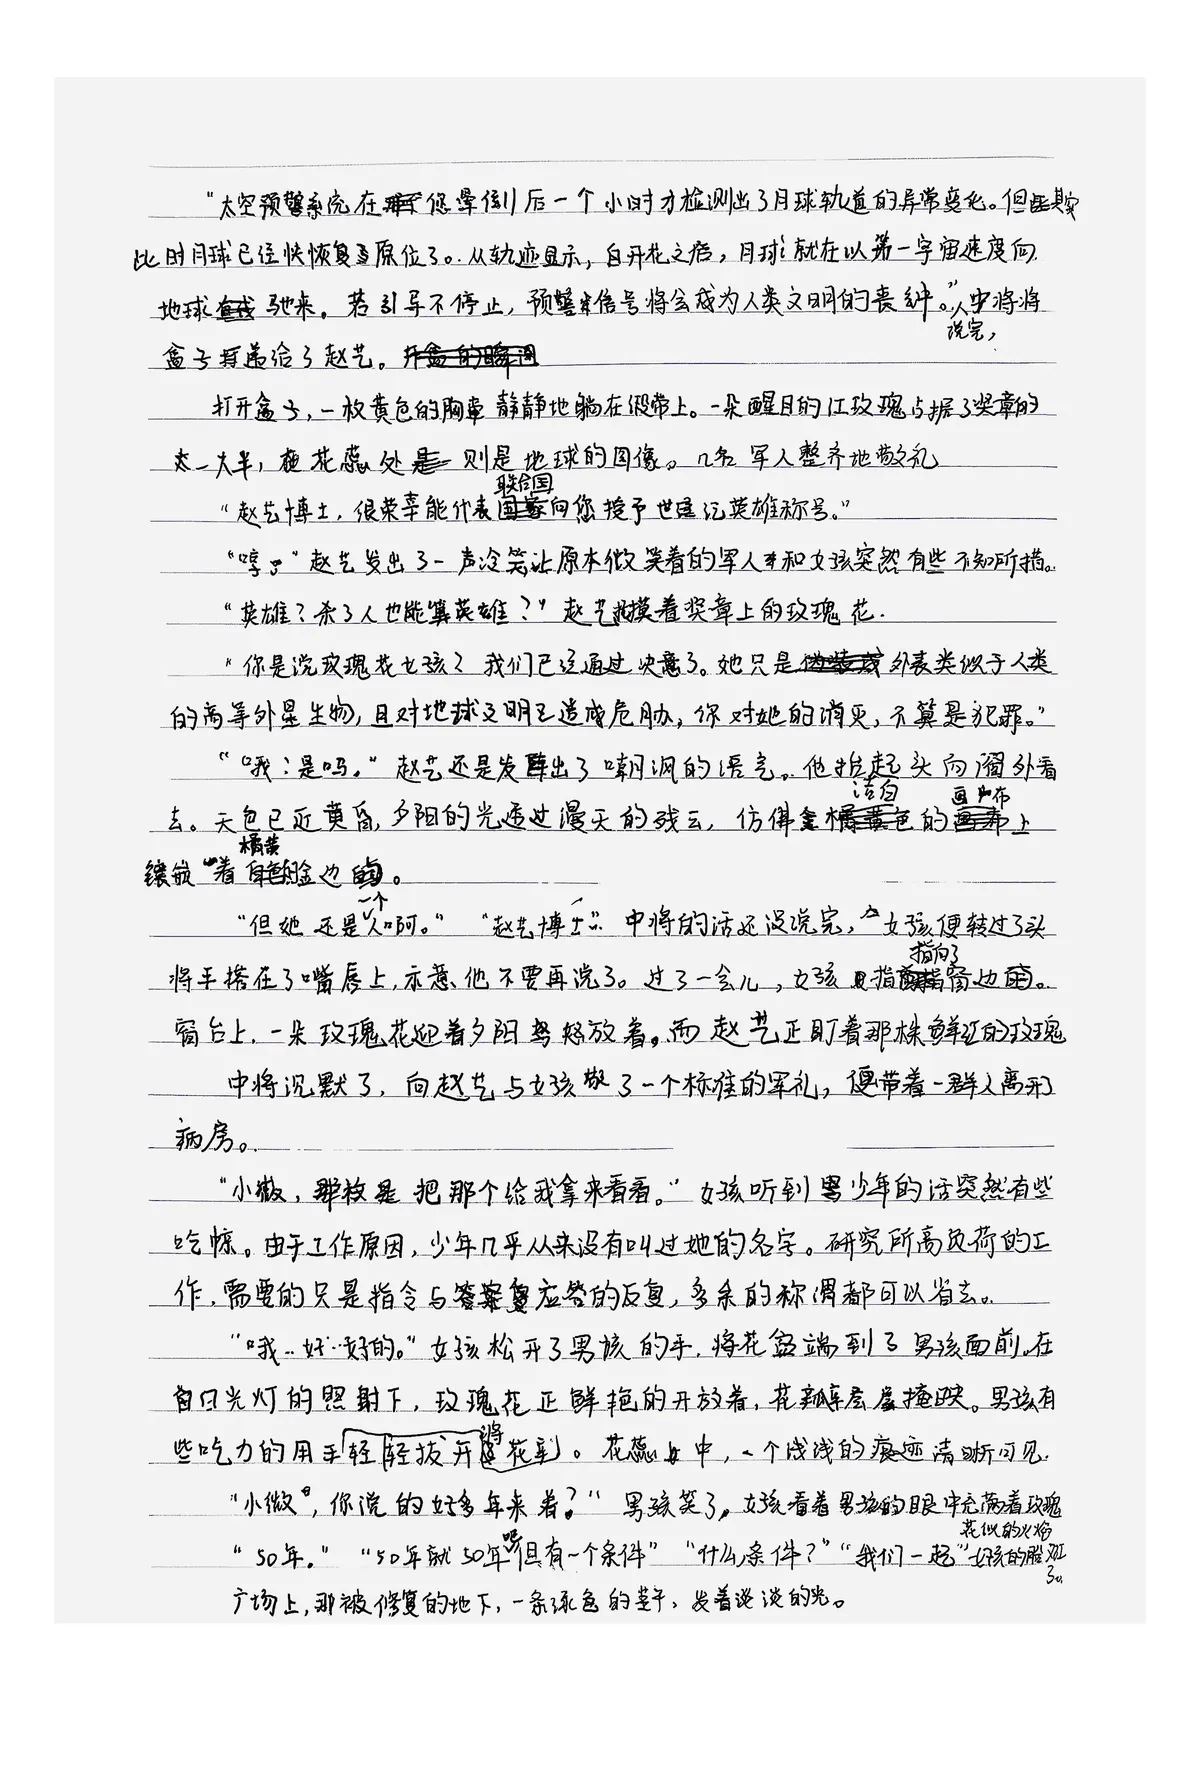 "太空预警系统在您晕倒后一个小时才检测出了月球轨道的异常变化。但其实
此时月球已经快恢复原位了。从轨迹显示，自开花之后，月球就在以第一宇宙速度向
地球驰来。若引导不停止，预警信号将会成为人类文明的丧钟。"中将将
说完，
盒子递给了赵艺。
打开盒子，一枚黄色的胸章静静地躺在缎带上。一朵醒目的红玫瑰占据了奖章的
一大半，花蕊处则是地球的图像。几名军人整齐地敬礼
联合国
"赵艺博士，很荣幸能代表向您授予世纪英雄称号。"
"哼。"赵艺发出了一声冷笑让原本微笑着的军人和女孩突然有些不知所措。
"英雄？杀了人也能算英雄？"赵艺抚摸着奖章上的玫瑰花.
"你是说玫瑰花女孩？我们已经通过决意了。她只是外表类似于人类
的高等外星生物，且对地球文明已造成危胁，你对她的消灭，不算是犯罪。"
"哦：是吗。"赵艺还是发出了嘲讽的语气。他抬起头向窗外看
洁白 画布
去。天色已近黄昏，夕阳的光透过漫天的残云，仿佛色的上
橘黄
镶嵌着边。
一个
"但她还是人啊。" "赵艺博士"中将的话还没说完，女孩便转过了头
指向了
将手搭在了嘴唇上，示意他不要再说了。过了一会儿，女孩窗边。
窗台上，一朵玫瑰花迎着夕阳怒放着。而赵艺正盯着那株鲜红的玫瑰
中将沉默了，向赵艺与女孩敬了一个标准的军礼，便带着一群人离开了
病房。
"小微，把那个给我拿来看看。"女孩听到少年的话突然有些
吃惊。由于工作原因，少年几乎从来没有叫过她的名字。研究所高负荷的工
作，需要的只是指令与应答的反复，多余的称谓都可以省去。
"哦‥好‥好的。"女孩松开了男孩的手，将花盆端到了男孩面前。在
白日光灯的照射下，玫瑰花正鲜艳的开放着，花瓣层层掩映。男孩有
将
些吃力的用手轻轻拨开花瓣。花蕊中，一个浅浅的痕迹清晰可见.
"小微，你说的好多年来着？"男孩笑了，女孩看着男孩的眼中充满着玫瑰
花似的火焰
"50年。" "50年就50年吧但有一个条件" "什么条件？" "我们一起"女孩的脸红
了。
广场上，那被修复的地下，一条绿色的茎干，发着淡淡的光。